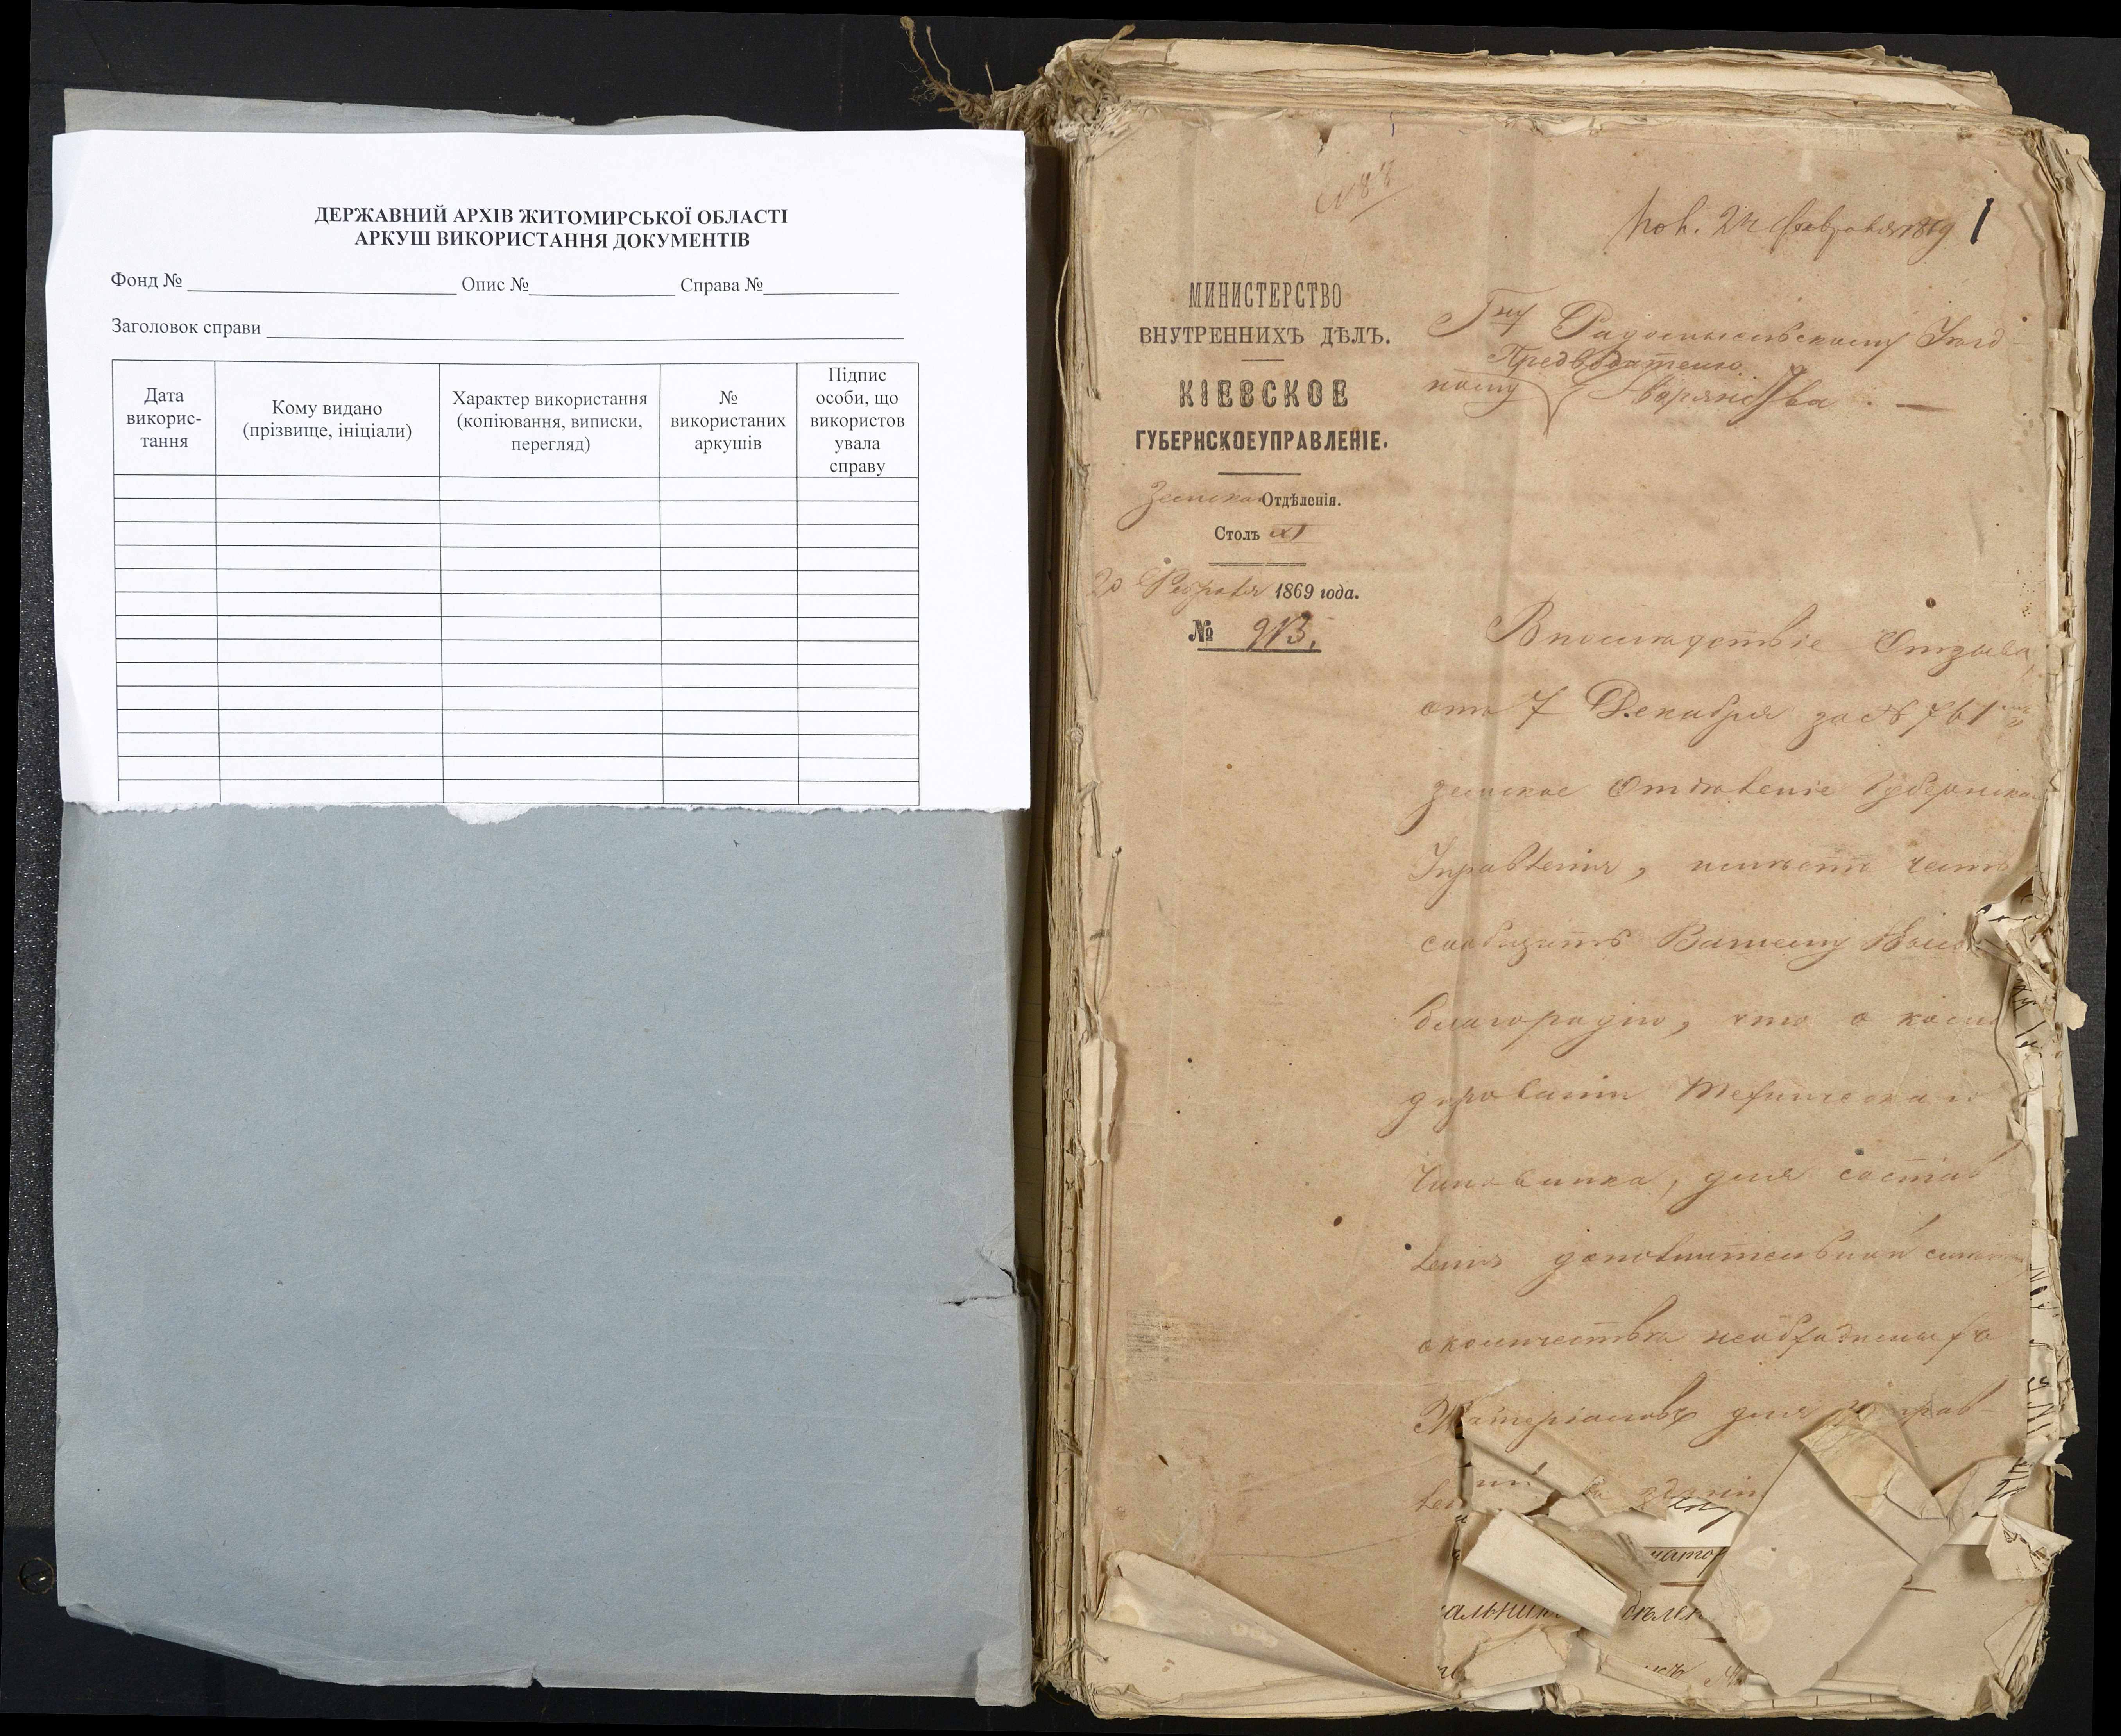 ДЕРЖАВНИЙ АРХІВ ЖИТОМИРСЬКОЇ ОБЛАСТІ
АРКУШ ВИКОРИСТАННЯ ДОКУМЕНТІВ
Фонд № Опис № Справа №
Заголовок справи
Дата
викорис-
тання
Кому видано
(прізвище, ініціали)
Характер використання
(копіювання, виписки,
перегляд)
№
використаних
аркушів
Підпис
особи, що
використов
увала
справу
1
МИНИСТЕРСТВО
ВНУТРЕННИХЪ ДѢЛЪ.
КІЕВСКОЕ
ГУБЕРНСКОЕ УПРАВЛЕНІЕ.
Отдѣленія.
Столъ
20 Февраля 1869 года.
№ 913.
Гну Радомысльскому Уѣзд-
ному Предводителю
Дворянства.
Впослѣдствіе Отзыва,
отъ 7 Декабря за №
земское Отдѣленіе Губернскаго
Управленія, имѣетъ честь
сообщить Вашему Высо
благородію, что о коман
дированіи Техническаго
Чиновника, для состав
ленія дополнительной смѣты
о количествѣ необходимыхъ
Матеріаловъ для исправ-